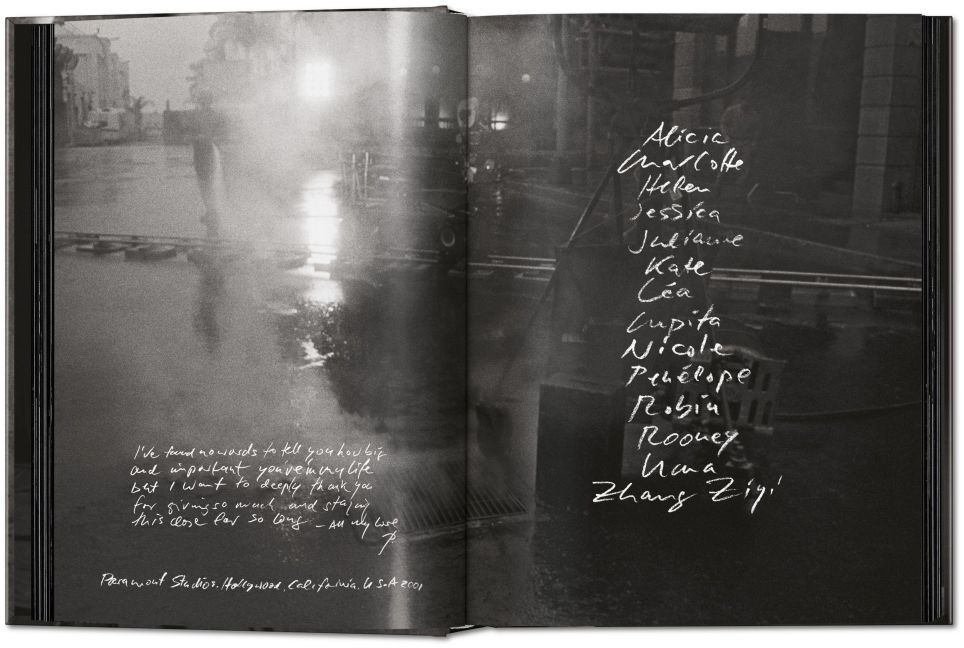 I've found no words to tell you how big
and important you're in my life
but I want to deeply thank you
for giving so much and staying
this close for so long – All my love
P
Paramount Studios, Hollywood, California, USA 2001
Alicia
Charlotte
Helen
Jessica
Julianne
Kate
Léa
Lupita
Nicole
Penélope
Robin
Rooney
Uma
Zhang Ziyi